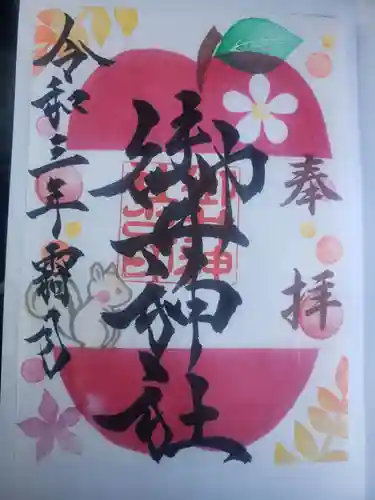 奉拝
御井神社
令和三年霜月